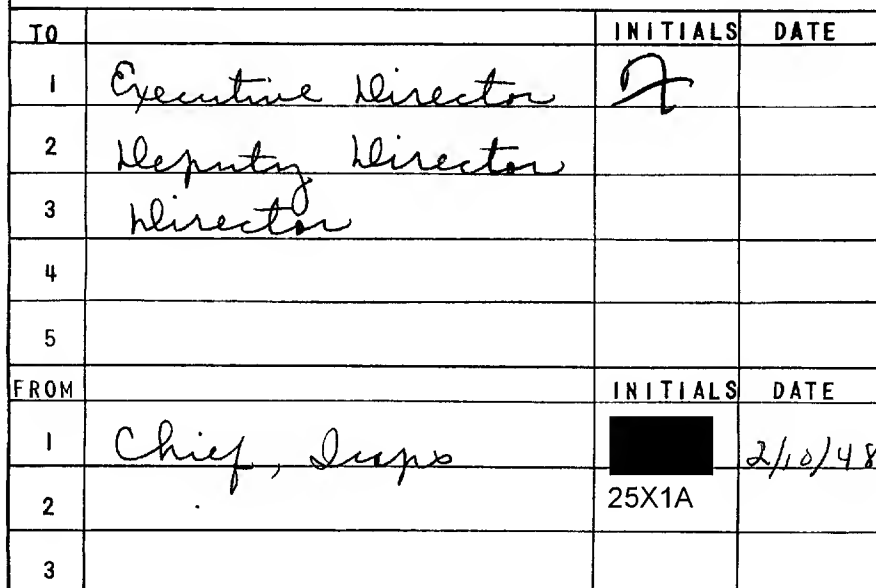 TO INITIALS DATE
1 Executive Director
2 Deputy Director
3 Director
4
5
FROM INITIALS DATE
1 Chief, Icaps 2/10/48
2 25X1A
3